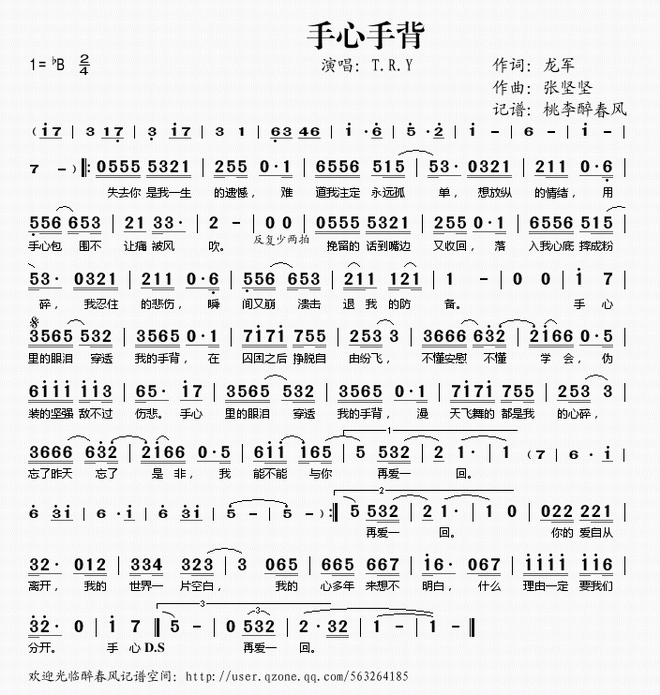 手心手背
1=♭B 2/4 演唱: T.R.Y 作词: 龙军
作曲: 张坚坚
记谱: 桃李醉春风
( i7 | 3 17 | 3 i7 | 3 1 | 63 46 | i · 6 | 5 · 2 | i - | 6 - | i - |
7 - ) ‖: 0555 5321 | 255 0·1 | 6556 515 | 53· 0321 | 211 0·6 |
失去你 是我一生 的遗憾, 难 道我注定 永远孤 单, 想放纵 的情绪, 用
556 653 | 21 33· | 2 - | 0 0 | 0555 5321 | 255 0·1 | 6556 515 |
手心包 围不 让痛 被风 吹。 反复少两拍 挽留的 话到嘴边 又收回, 落 入我心底 摔成粉
53· 0321 | 211 0·6 | 556 653 | 211 121 | 1 - | 0 0 | i 7 |
碎, 我忍住 的悲伤, 瞬 间又崩 溃击 退 我 的防 备。 手 心
3565 532 | 3565 0·1 | 7i7i 755 | 253 3 | 3666 632 | 2i66 0·5 |
里的眼泪 穿透 我的手背, 在 囚困之后 挣脱自 由纷飞, 不懂安慰 不懂 学 会, 伪
6iii ii3 | 65· i7 | 3565 532 | 3565 0·1 | 7i7i 755 | 253 3 |
装的坚强 敌不过 伤悲。 手心 里的眼泪 穿透 我的手背, 漫 天飞舞的 都是我 的心碎,
3666 632 | 2i66 0·5 | 6ii i65 | 5 532 | 2 1· | 1 - | (7 | 6 · i |
1
忘了昨天 忘了 是 非, 我 能不能 与你 再爱一 回。
6 3i | 6 · i | 6 3i | 5 - | 5 - ) :‖ 5 532 | 2 1· | 1 0 | 022 221 |
2
再爱一 回。 你的 爱自从
32· 012 | 334 323 | 3 065 | 665 667 | i6· 067 | iiii ii6 |
离开, 我的 世界一 片空白, 我的 心多年 来想不 明白, 什么 理由一定 要我们
32· 0 | i 7 ‖ 5 - | 0 532 | 2·32 | 1 - | 1 - ‖
3
3
分开。 手 心 D.S 再爱一 回。
欢迎光临醉春风记谱空间: http://user.qzone.qq.com/563264185